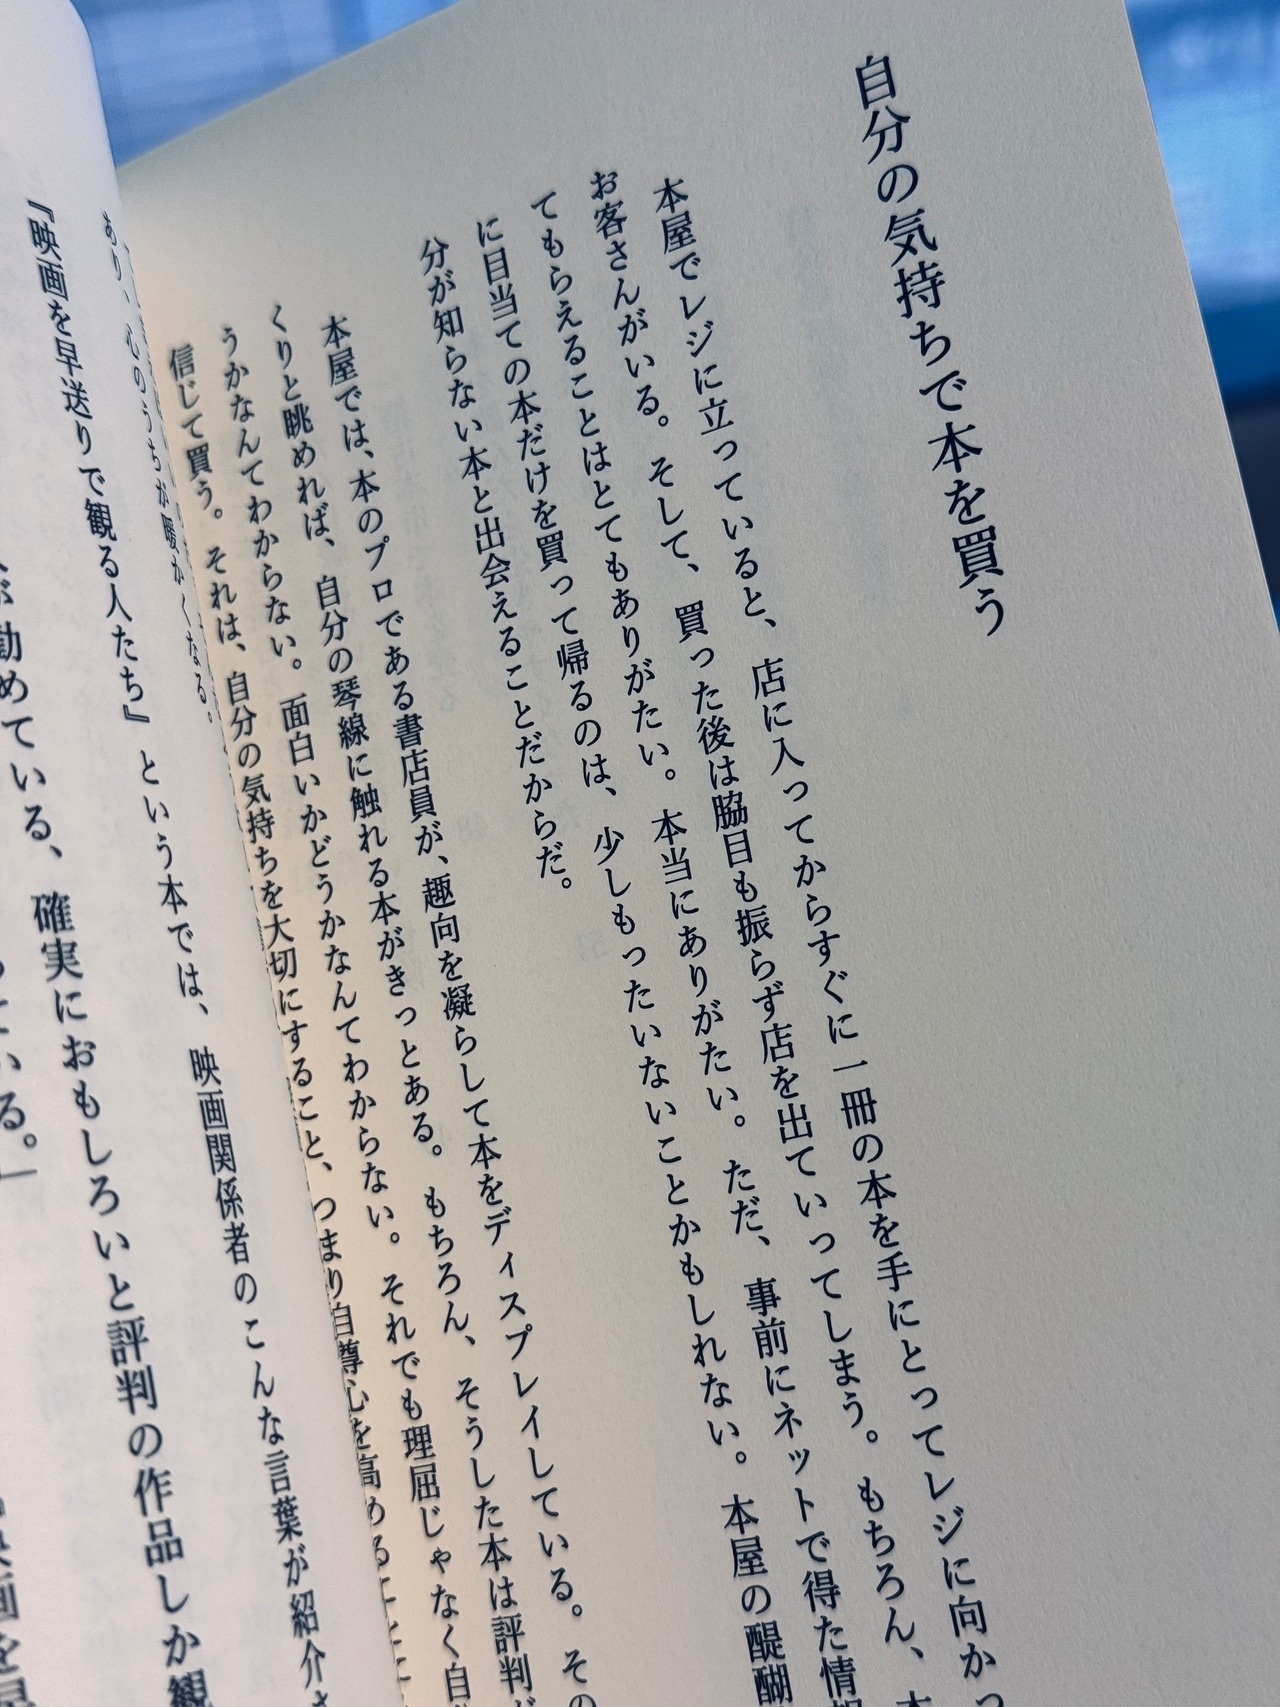 自分の気持ちで本を買う
本屋でレジに立っていると、店に入ってからすぐに一冊の本を手にとってレジに向かっ
お客さんがいる。そして、買った後は脇目も振らず店を出ていってしまう。もちろん、本
てもらえることはとてもありがたい。本当にありがたい。ただ、事前にネットで得た情報
に目当ての本だけを買って帰るのは、少しもったいないことかもしれない。本屋の醍醐
分が知らない本と出会えることだからだ。
本屋では、本のプロである書店員が、趣向を凝らして本をディスプレイしている。その
くりと眺めれば、自分の琴線に触れる本がきっとある。もちろん、そうした本は評判が
うかなんてわからない。面白いかどうかなんてわからない。それでも理屈じゃなく自
信じて買う。それは、自分の気持ちを大切にすること、つまり自尊心を高めること
あり、心のうちが暖かくなる。
『映画を早送りで観る人たち』という本では、映画関係者のこんな言葉が紹介さ
勧めている、確実におもしろいと評判の作品しか観
いる。」